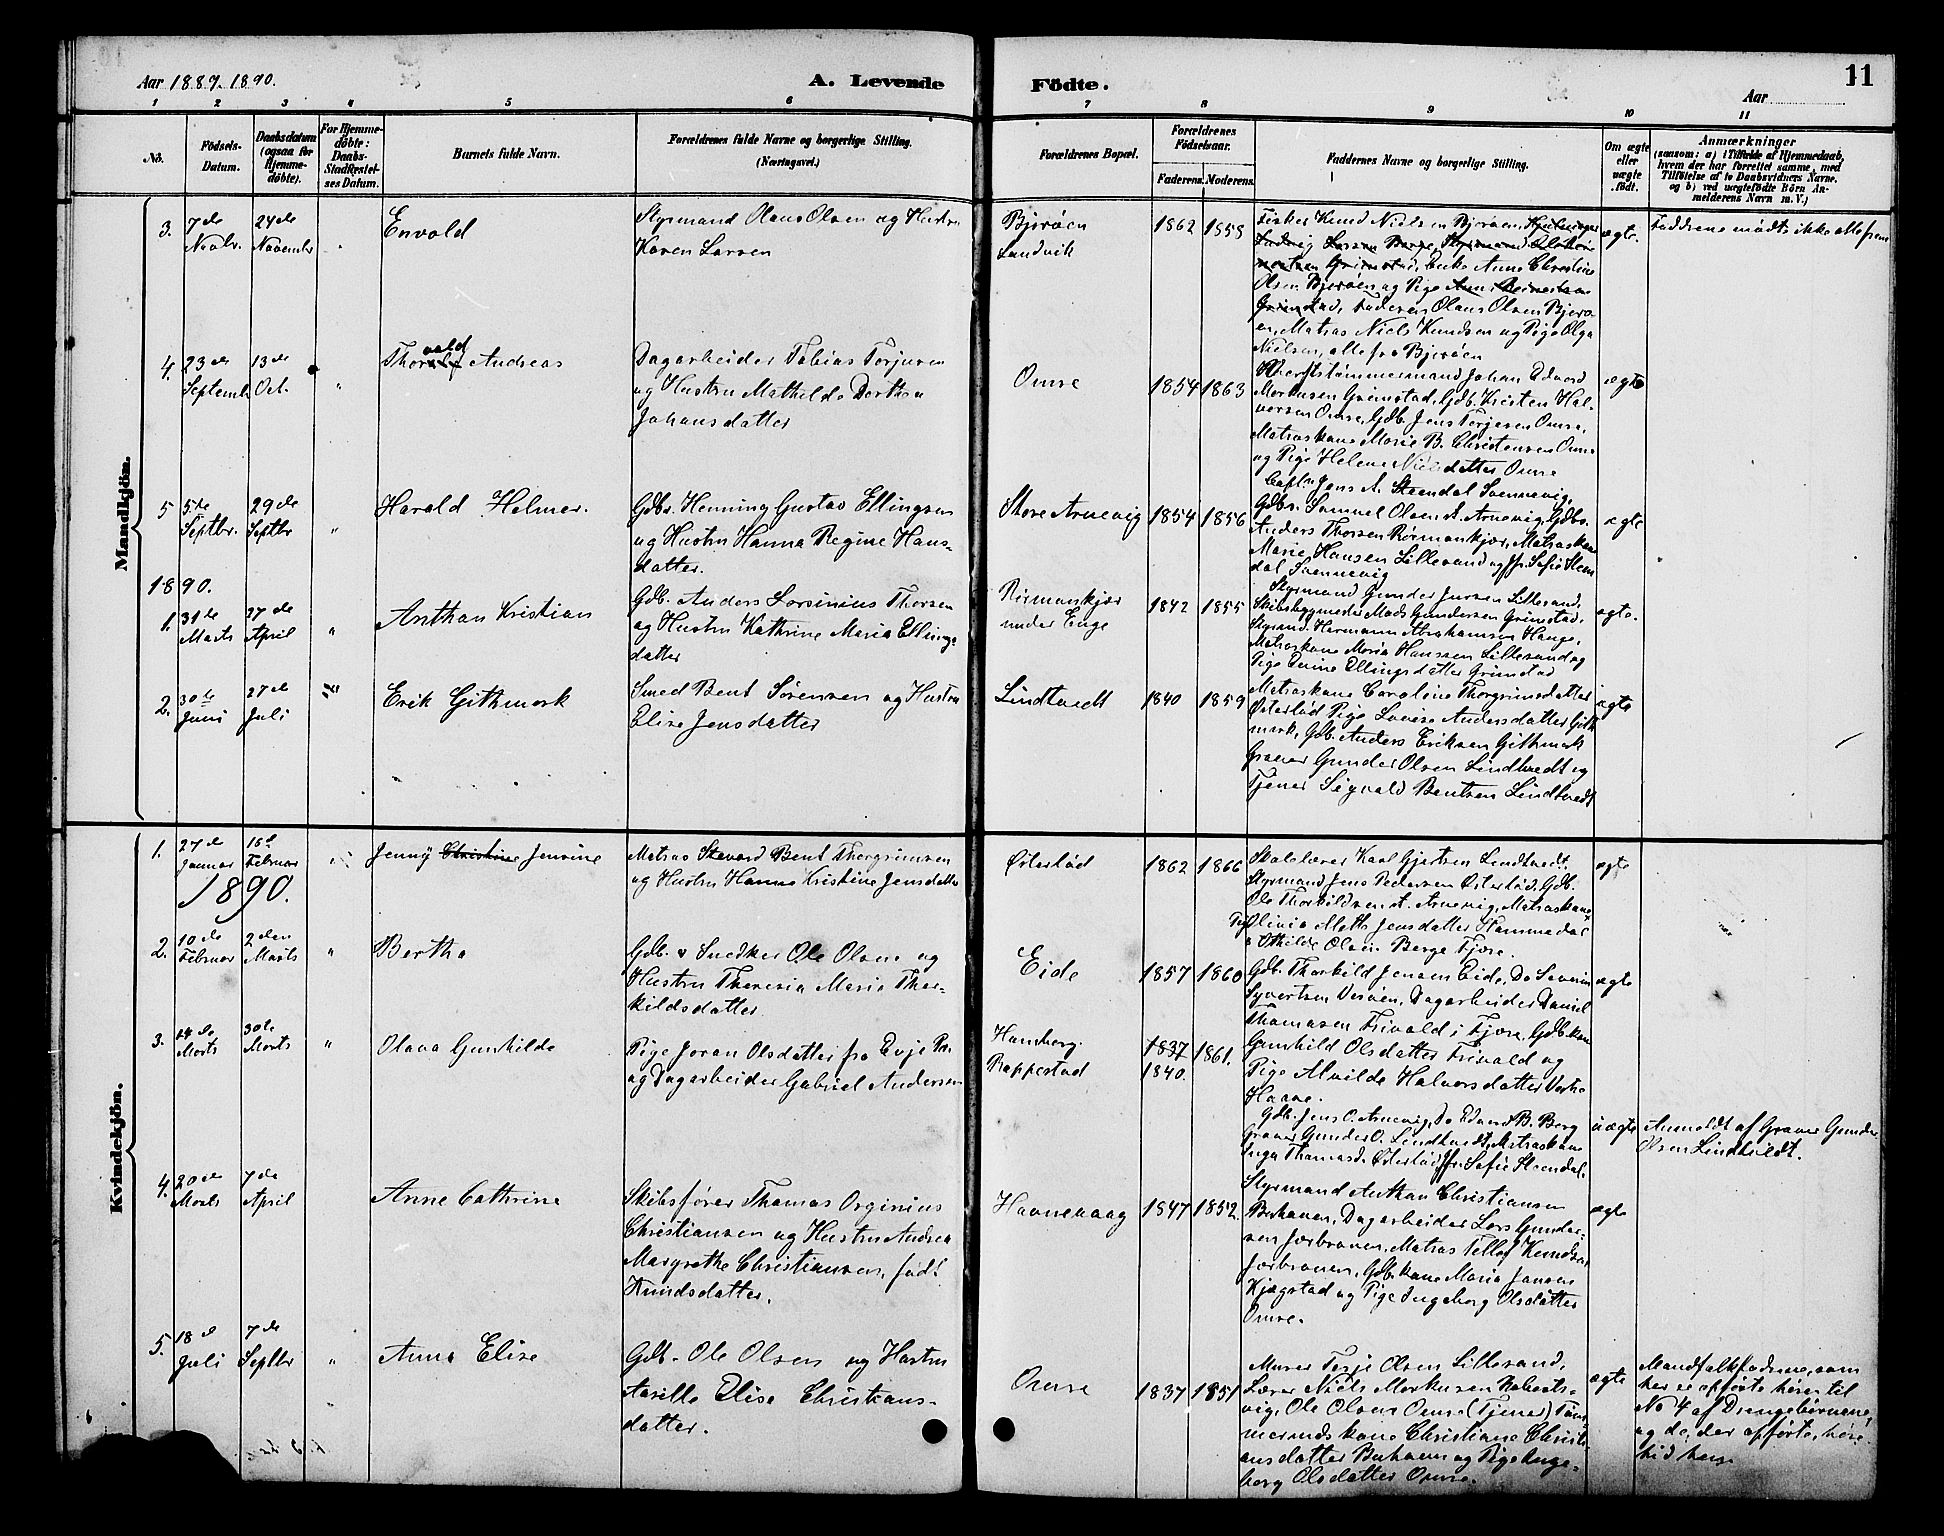 Aar 1889. 1890.
A. Levende Födte.
Aar
11
1 2 3 4 5 6 7 8 9 10 11
No.
Födsels-Datum.
Daabsdatum (ogsaa for Hjemme-döbte).
For Hjemme-döbte: Daabs-Stadfæstel-ses Datum.
Barnets fulde Navn.
Forældrenes fulde Navne og borgerlige Stilling. (Næringsvei.)
Forældrenes Bopæl.
Forældrenes Födselsaar.
Faderens. Moderens.
Faddernes Navne og borgerlige Stilling.
Om ægte eller uægte födt.
Anmærkninger
(saasom: a) i Tilfælde af Hjemmedaab,
hvem der har forrettet samme, med
Tilföielse af to Daabsvidners Navne.
og b) ved uægtefödte Börn An-
melderens Navn m. V.)
Mandkjön.
3. 7de Novbr. 24de Novembr "
Envald
Styrmand Olaus Olsen og Hustru
Karen Larsen
Bjorøen
Landvik
1862 1858
Fisker Knud Nielsen Bjorøen,
Ludvig Larsen Berge, Styrmand
Grimstad, Enke Anne Christine
Olsen Bjorøen og Pige
Grimstad, Faderen Olaus Olsen Bjorø-
en, Matros Niels Knudsen og Pige Olga
Nielsen, alle fra Bjorøen
ægte.
Faddrene mødte ikke alle frem
4. 23de Septembr 13de Oct. "
Thorvald Andreas
Dagarbeider Tobias Torjusen
og Hustru Mathilde Dorthea
Johansdatter
Omre
1854 1863
Værftstømmermand Johan Edvard
Mortensen Grimstad, Gdb. Kristen Hal-
vorsen Omre, Gdb. Jens Terjesen Omre,
Matroskone Marie B. Christensen Omre
og Pige Helene Nielsdatter Omre
ægte
5 5te Septbr. 29de Septbr "
Harald Helmer.
Gdbr. Henning Gustav Ellingsen
og Hustru Hanna Regine Hans-
datter.
Store Arnevig
1854 1856
Capt. Jens A. Steendal Svennevig,
Gdbr. Samuel Olsen St. Arnevig, Gdbr.
Anders Thorsen Rørmankjær, Matroskone
Marie Hansen Lillesand og Jfr. Sofie Steen
dal Svennevig
ægte
1890.
1. 31te Marts 27de April "
Anthan Kristian
Gdb. Anders Lorsinius Thorsen
og Hustru Kathrine Maria Ellings-
datter
Rørmankjær
under Enge
1842 1855
Styrmand Gunder Jensen Lillesand,
Skibsbygmester Mads Gundersen Grimstad,
Styrmand Harmann Abrahamsen Hauge,
Matroskone Maria Hanssen Lillesand og
Pige Ellingsdatter Grimstad
ægte.
2. 30te Juni 27de Juli
Erik Githmark
Smed Bent Sørensen og Hustru
Elise Jensdatter
Lindtvedt
1840 1859
Matroskone Caroline Thorgrimsdatter
Østerstød Pige Lovise Andersdatter Gith
mark, Gdb. Anders Eriksen Githmark
Graver Gunder Olsen Lindtvedt og
Tjener Sigvald Bentsen Lindtvedt
ægte
Kvindekjön.
1. 27de Januar 16de Februar "
1890.
Jenny Christine Jensine
Matros Stevard Bent Thorgrimsen
og Hustru Hanna Kristine Jensdatter
Østerstød
1862 1866
Skolelærer Karl Gjertsen Lindtvedt,
Styrmand Jens Pedersen Østerstød, Gdb.
Ole Thorkildsen St. Arnevig, Matroskone
Olivia Mathe Jensdatter Stammedal
Pige Othilde Olsen Berge Fjære.
ægte
2. 10de Februar 2den Marts "
Bertha
Gdb. & Snedker Ole Olsen og
Hustru Theresia Maria Thor-
kildsdatter.
Eide
1857 1860
Gdb. Thorkild Jensen Eide, Do Severin
Syvertsen Vesøen, Dagarbeider Daniel
Thomasen Trivold i Fjære, Gdb. kone
Gunhild Olsdatter Trivold og
Pige Alvilde Halvorsdatter Vestre
Haave.
ægte
3. 14de Marts 30te Marts "
Olava Gunhilde
Pige Joran Olsdatter fra Evje Pr.
og Dagarbeider Gabriel Andersen
Hamberg.
Rappestad
1837 1840. 1861.
Gdb. Jens O. Arnevig, Do Edvard B. Berg
Graver Gunder O. Lindtvedt, Matroskone
Inga Thomasd. Østerstød Jfr. Sofie Steendal.
uægte
Anmeldt af Graver Gunder
Olsen Lindtvedt.
4. 20de Marts 7de April
Anne Cathrine
Skibsfører Thomas Orginius
Christiansen og Hustru Andrea
Margrethe Christiansen, født
Knudsdatter.
Havnevaag
1847 1852.
Styrmand Anthan Christiansen
Buhaven, Dagarbeider Lars Gunder-
sen Jorbraaten, Matros Tellef Knudsen
Jorbraaten, Gdb. kone Maria Jensen
Kjægstad og Pige Ingeborg Olsdatter
Omre.
ægte
5. 18de Juli 7de Septbr "
Anna Elise
Gdb. Ole Olsen og Hustru
Elise Christians-
datter.
Omre
1837 1851
Murer Terje Olsen Lillesand,
Lærer Niels Markusen Roberts-
vig, Ole Olsen Omre (Tjener) Tøm-
mermandskone Christiane Christi-
ansdatter Buhaven og Pige Inge-
borg Olsdatter Omre.
ægte
Mandfolkfadrene, som
her er opførte hører til
No 4 af Drengebørnene,
og de, der opførte, høre
hid hen